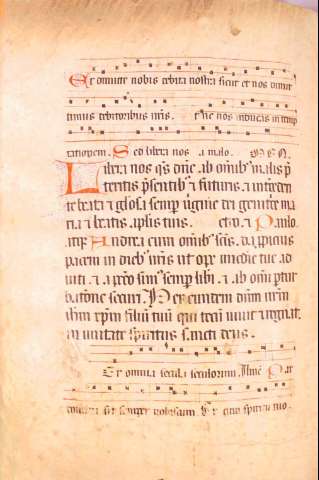 Et dimitte nobis debita nostra sicut et nos dimit
timus debitoribus nr̃is. Et ne nos inducas in temp
tationem. Sed libera nos a malo. Amen.
Libera nos q̃s dñe. ab om̃ib' malis p̃
teritis p̃sentib' & futuris. & interceden
te beata & gl̃osa semp̃ uirgine dei genitrice ma
ria & beatis ap̃lis tuis. Petro. & Paulo.
atq̃ Andrea cum om̃ib' sc̃is. da propicius
pacem in dieb' nr̃is ut ope mis̃die tue ad
iuti. & a pcc̃o sim' semp̃ lib̃i. & ab om̃i ptur
batione securi. Per eundem dñm nr̃m
ihm xp̃m filiu tuu qui tecu uiuit & regnat.
in unitate spiritus sancti deus.
Per omnia secula seculorum. Am̃. Pax
domini sit semper uobiscum. Et cum spiritu tuo.